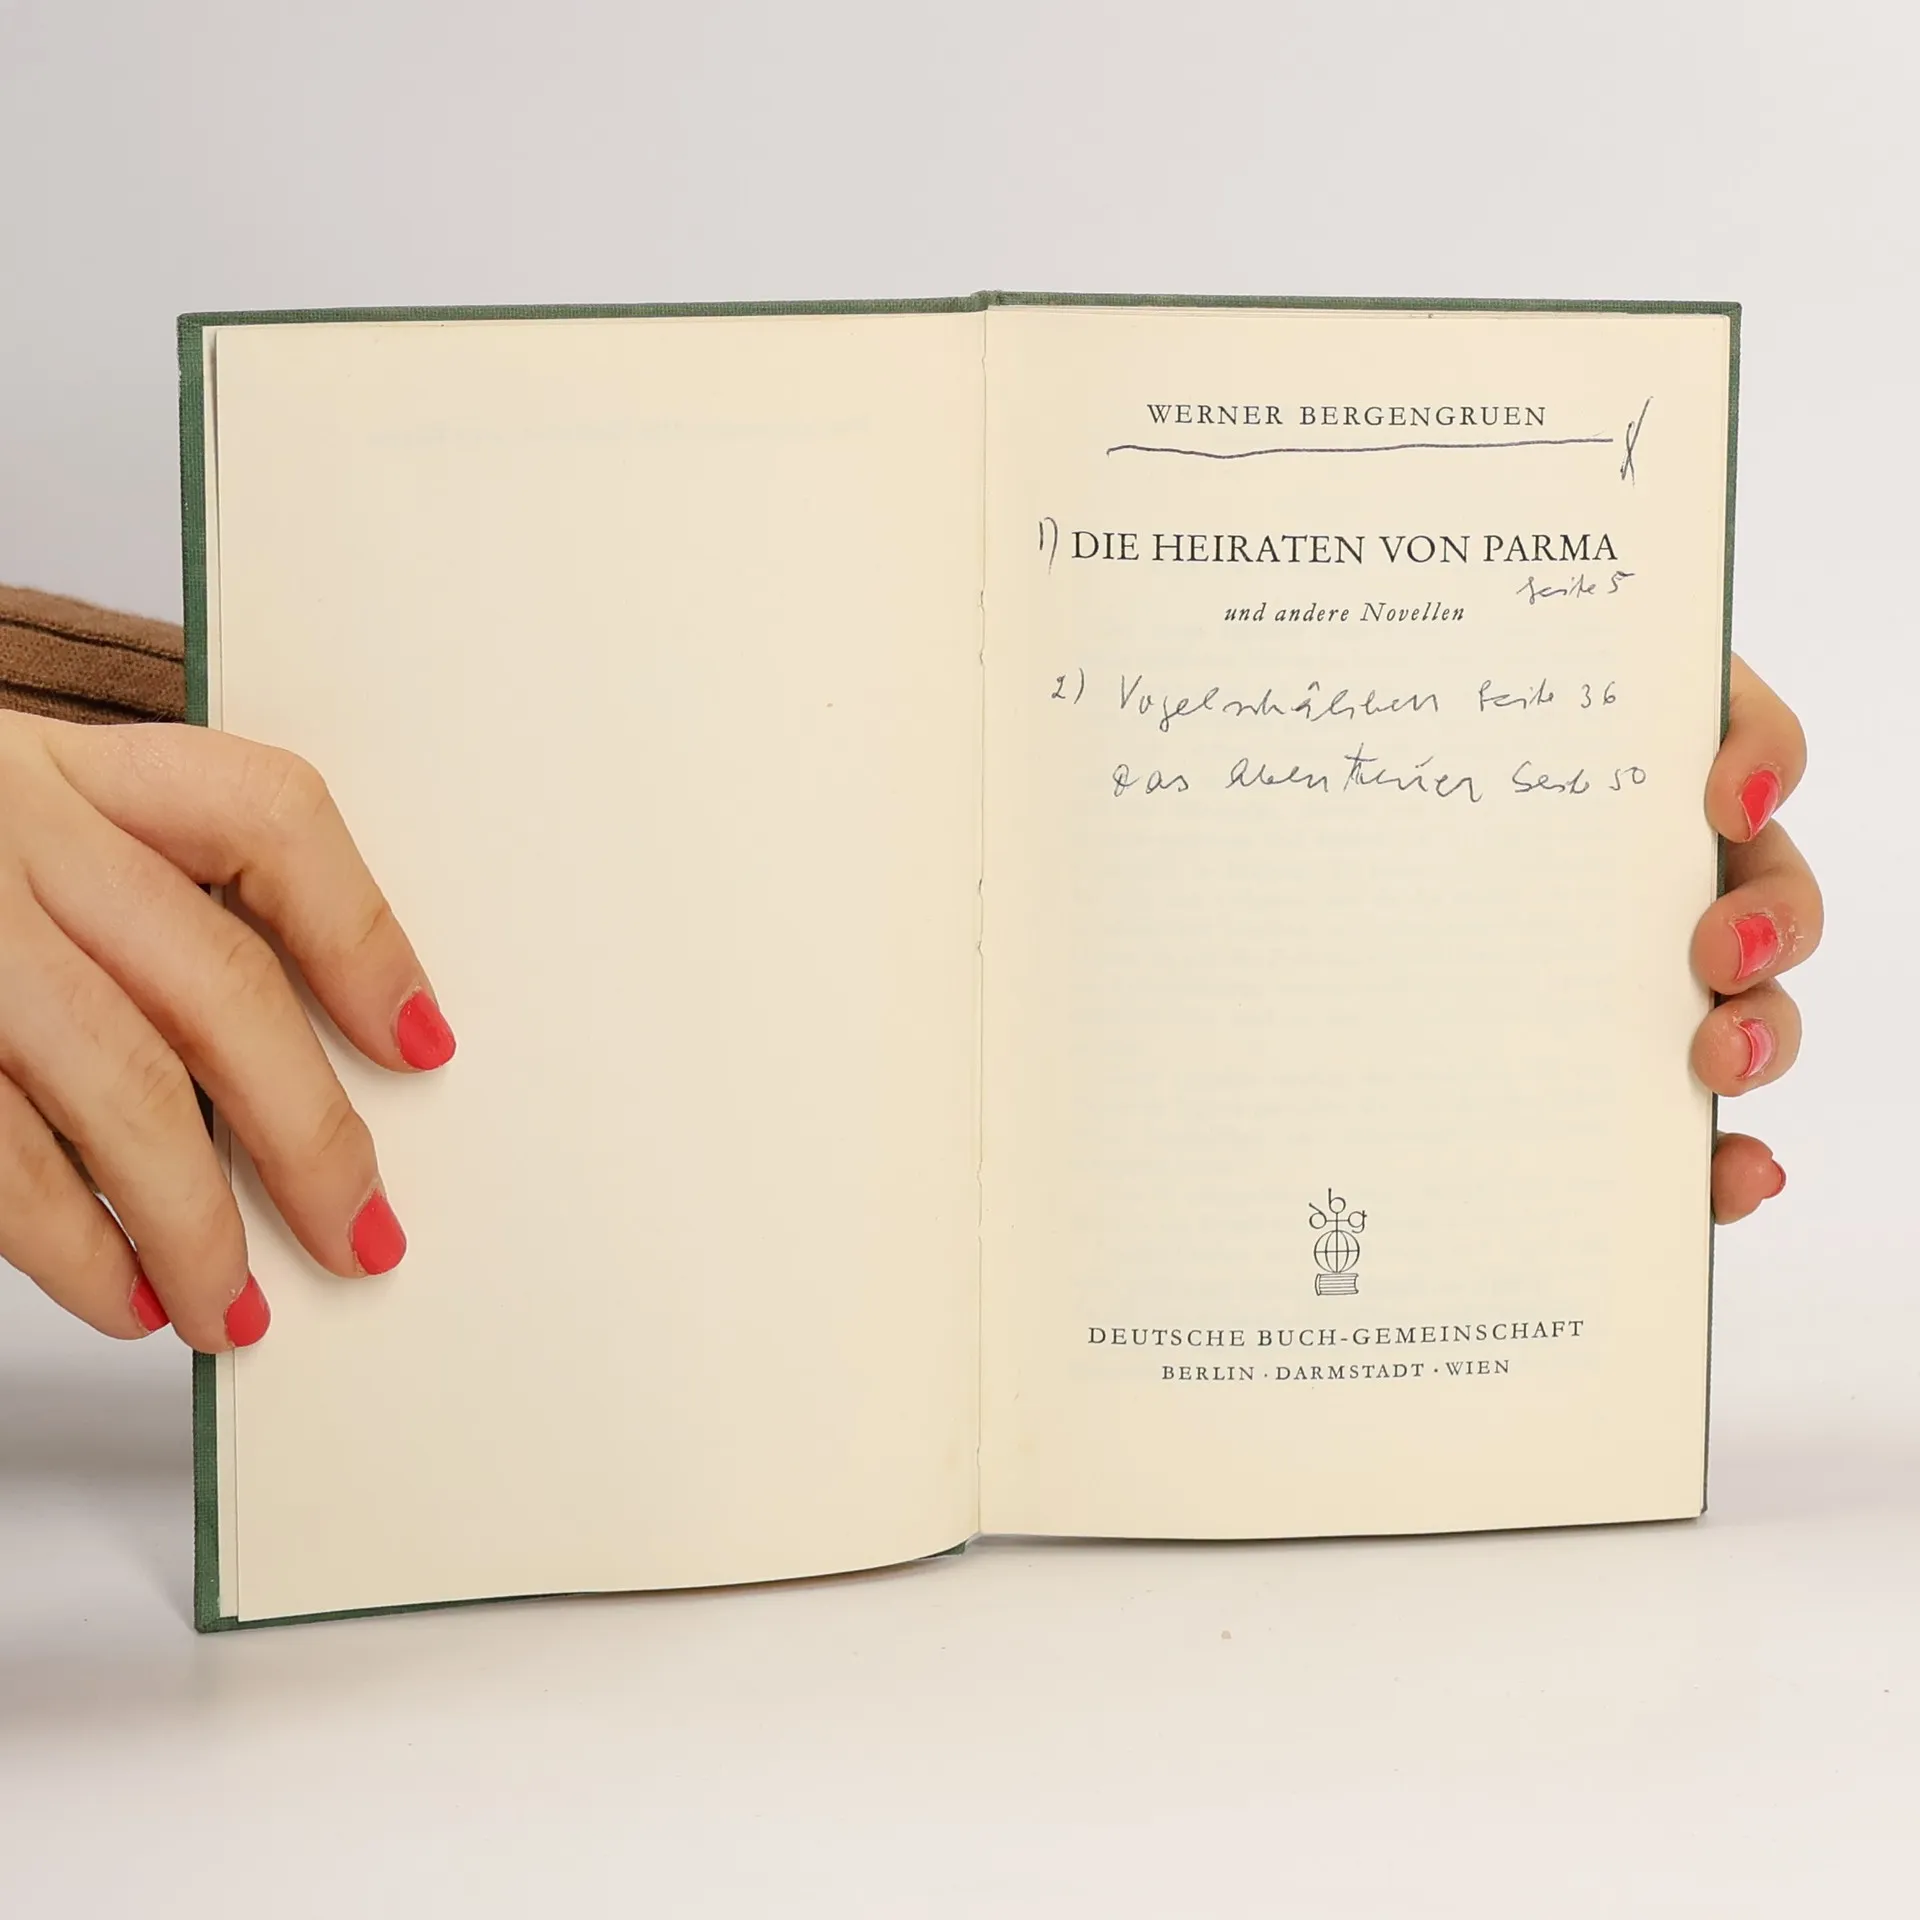 WERNER BERGENGRUEN
1) DIE HEIRATEN VON PARMA
Seite 5
und andere Novellen
2) Vogelschälchen Seite 36
Das Abenteuer Seite 50
dbg
DEUTSCHE BUCH-GEMEINSCHAFT
BERLIN · DARMSTADT · WIEN